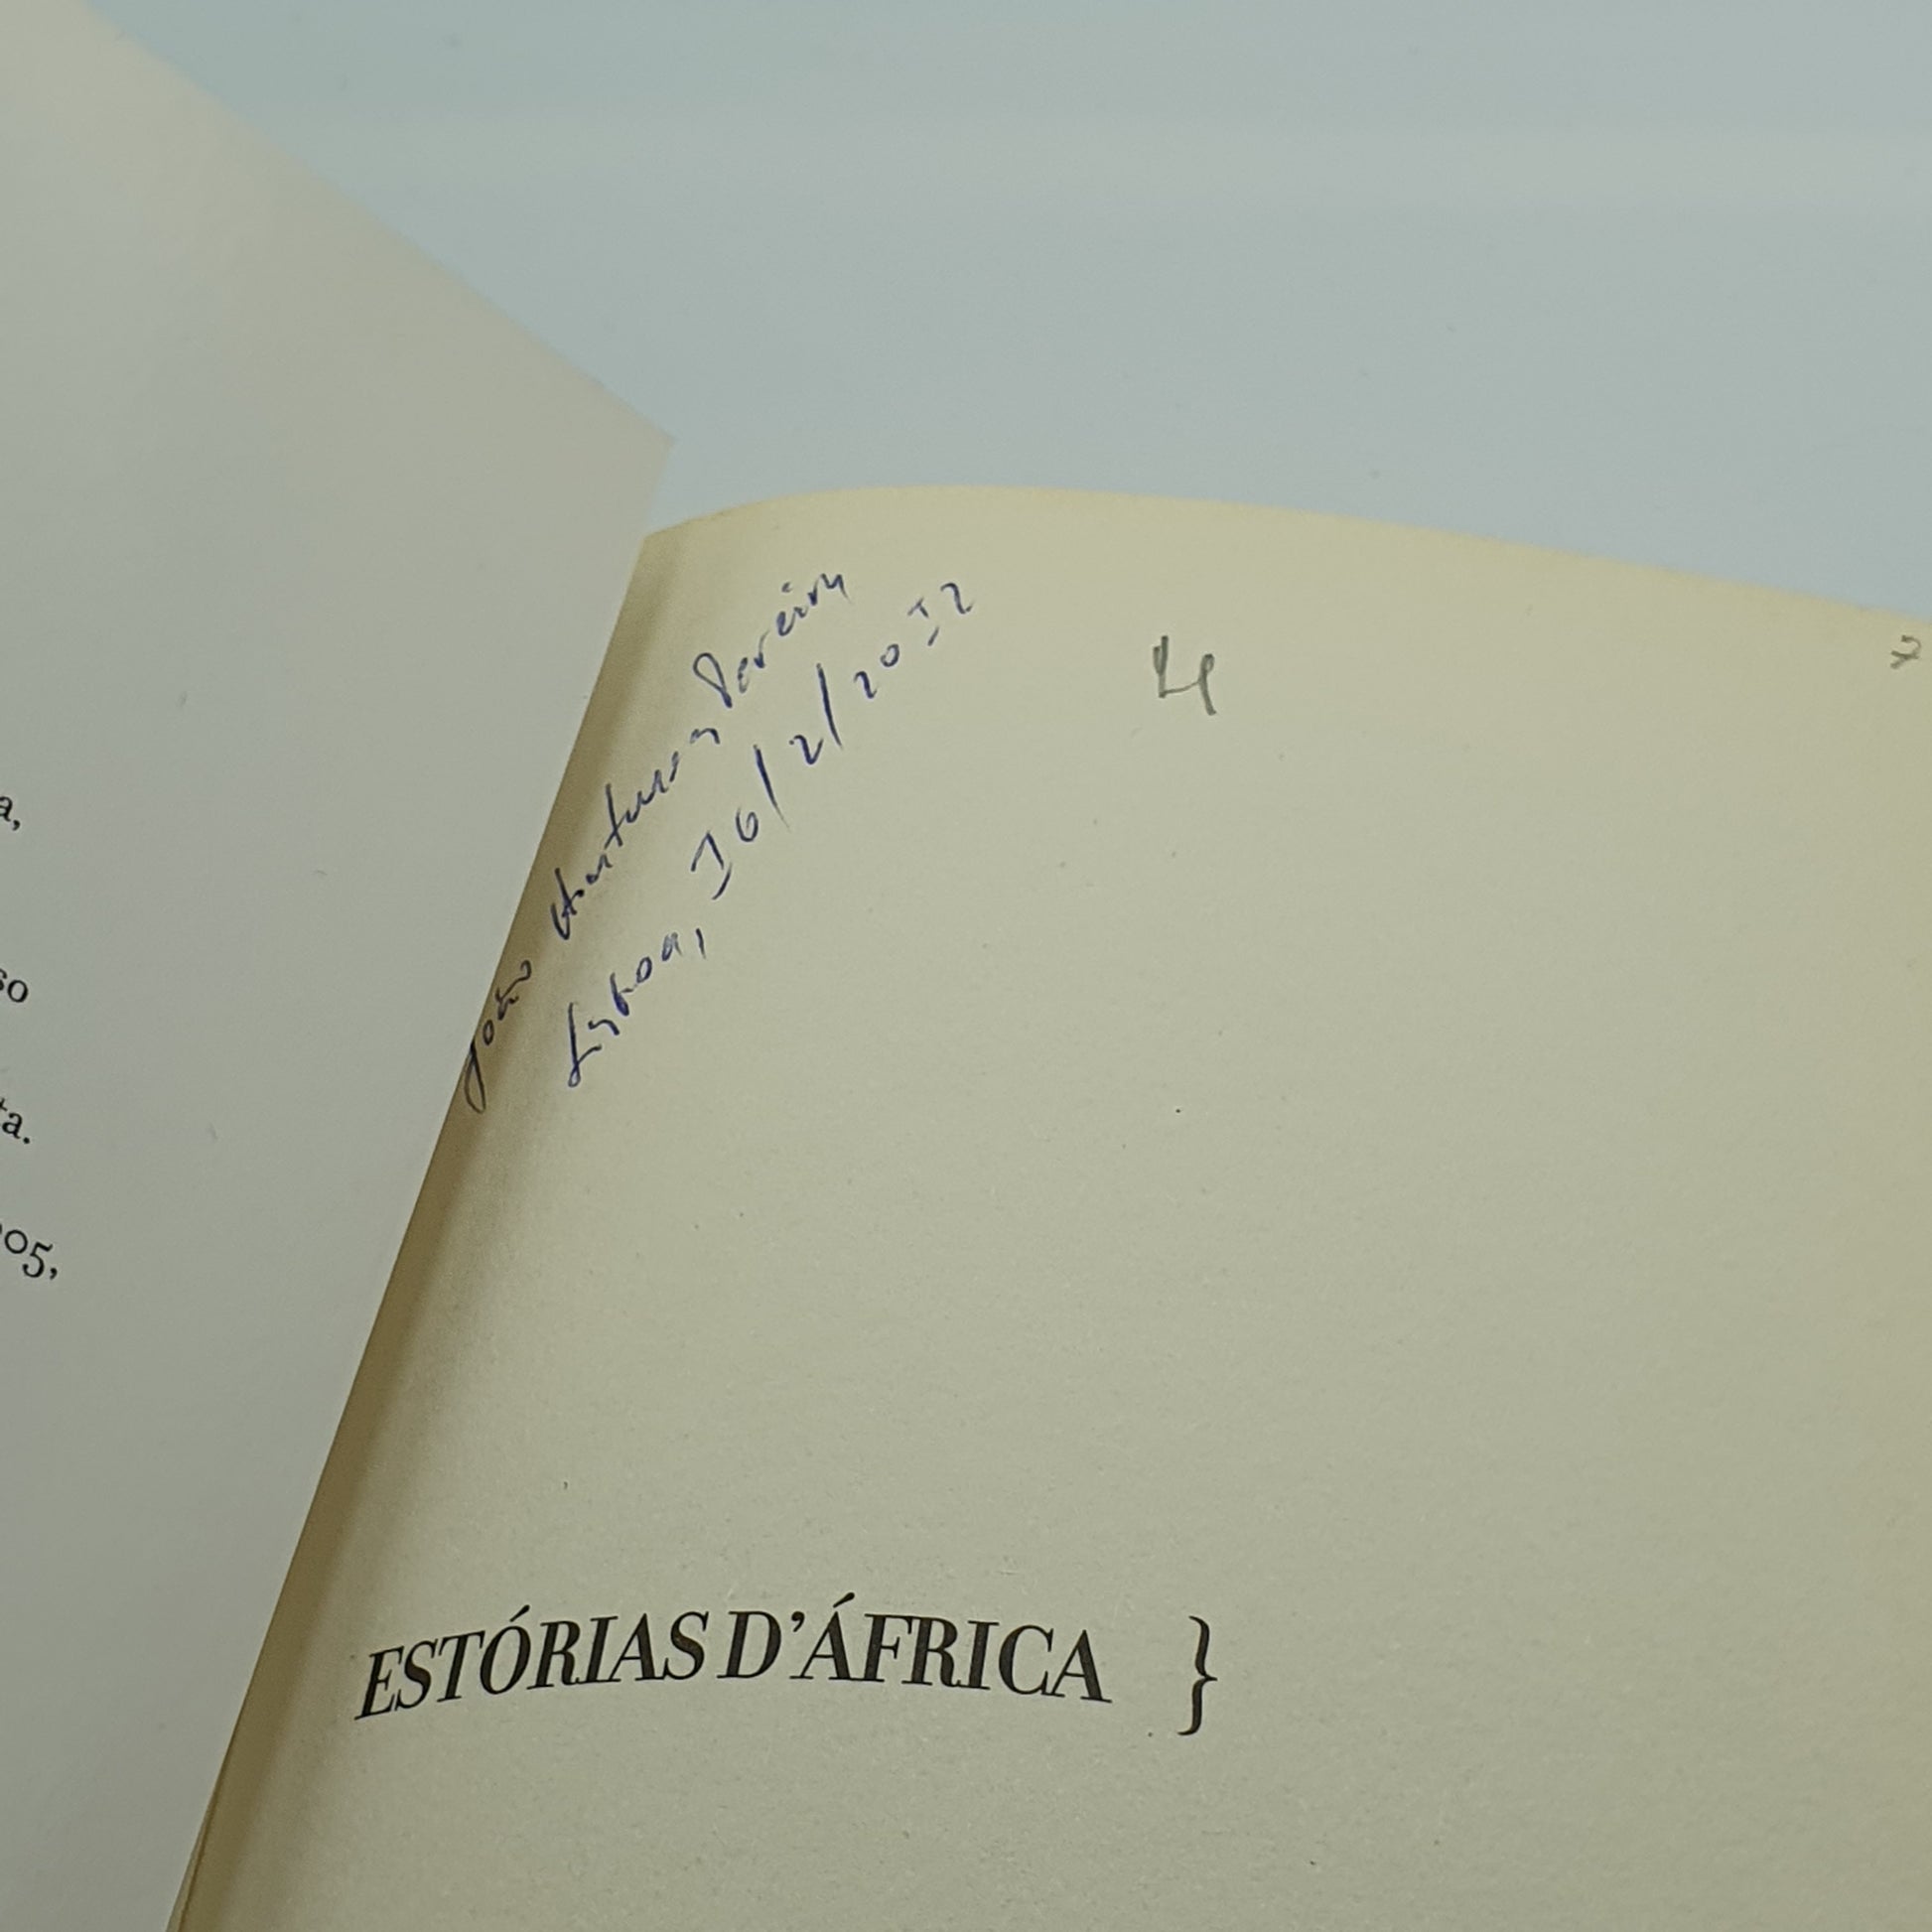 a,
so
ta.
05,
João Antunes Pereira
Lisboa, 16/2/2012
4
ESTÓRIAS D'ÁFRICA }